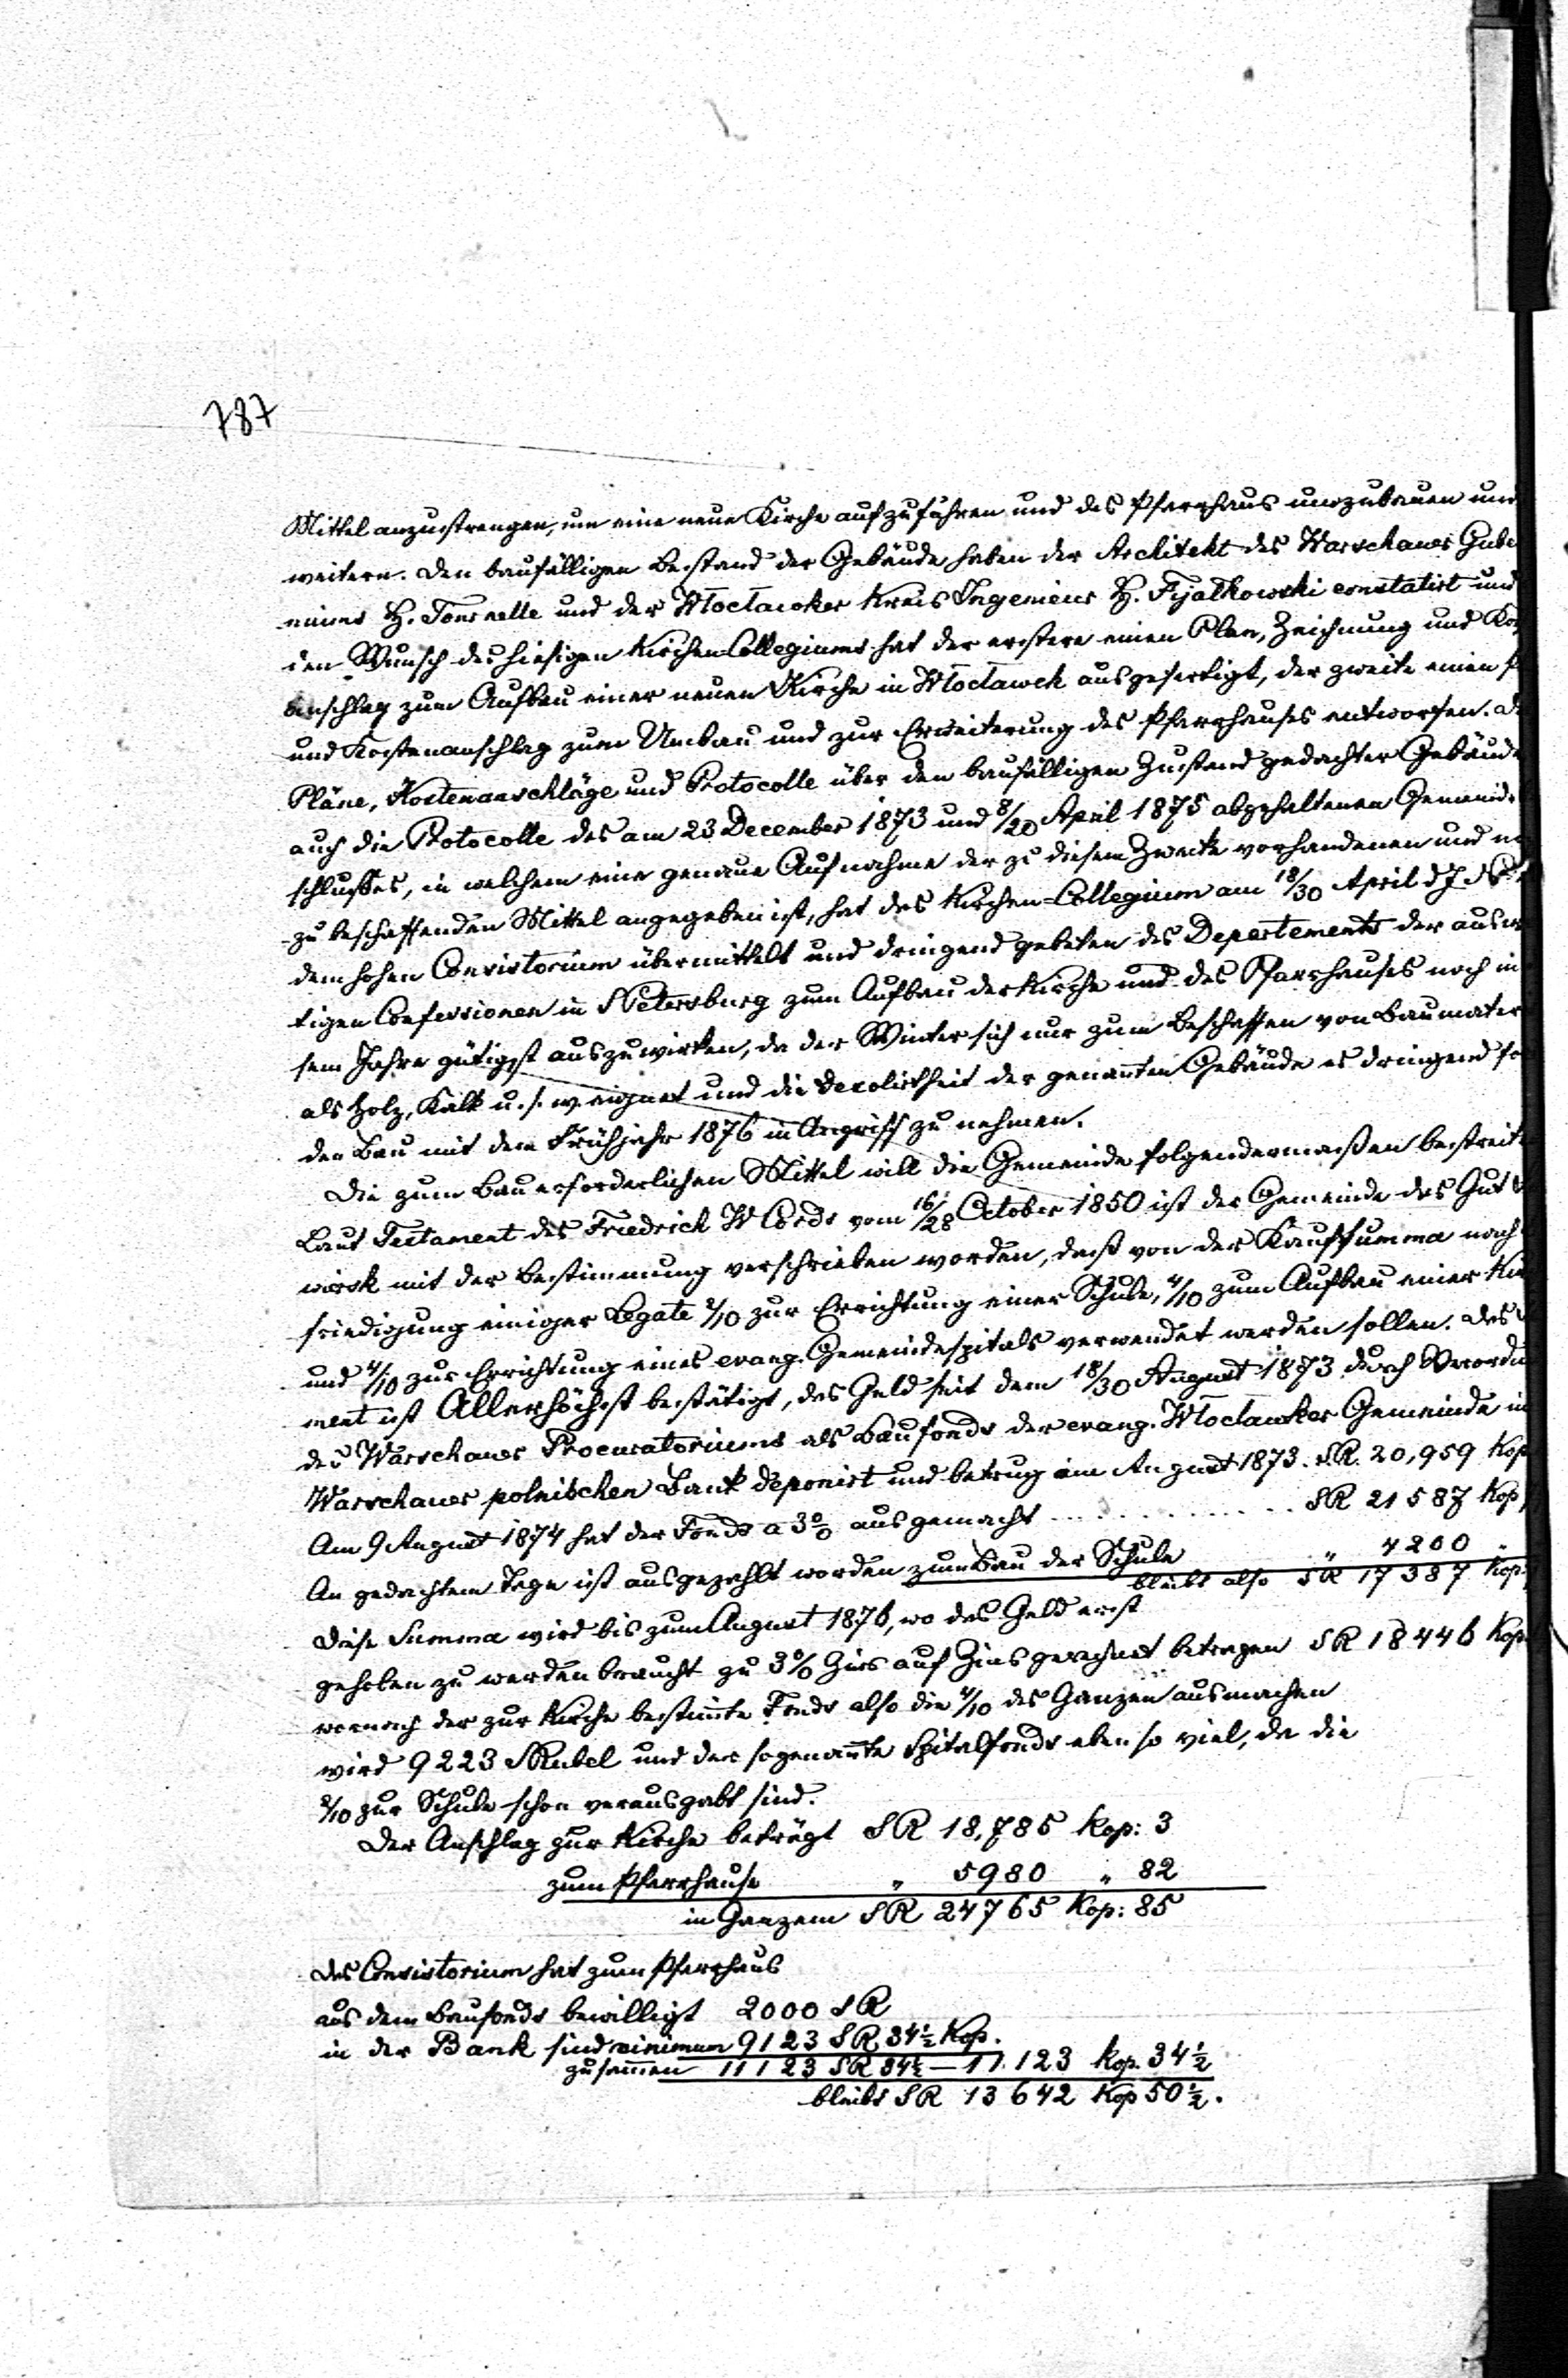 787
Mittel anzustrengen, um eine neue Kirche aufzuführen und das Pfarrhaus umzubauen und
weitern. Den baufälligen Bestand der Gebäude haben der Architekt des Warschauer Gube
niums H. Tournelle und der Włocławker Kreis Ingenieur H. Fijałkowski constatirt und
den Wunsch des hiesigen Kirchen-Collegiums hat der erstere einen Plan, Zeichnung und Kos
anschlag zum Aufbau einer neuen Kirche in Włocławek ausgefertigt, der zweite einen
und Kostenanschlag zum Umbau und zur Erweiterung des Pfarrhauses entworfen.
Pläne, Kostenanschläge und Protocolle über den baufälligen Zustand gedachter Gebäude
auch die Protocolle des am 23 December 1873 und 8/20 April 1875 abgehaltenen Gemeinde
schlußes, in welchem eine genaue Aufnahme der zu diesem Zwecke vorhandenen und
zu beschaffenden Mittel angegeben ist, hat das Kirchen-Collegium am 18/30 April d J
dem hohen Consistorium übermittelt und dringend gebeten des Departements der ausw
tigen Confessionen in S Petersburg zum Aufbau der Kirche und des Pfarrhauses noch in
sem Jahre gütigst auszuwirken, da der Winter sich nur zum Beschaffen von Baumater
als Holz, Kalk u. s. w. eignet und die Desolirtheit der genañten Gebäude es dringend fo
den Bau mit dem Frühjahr 1876 in Angriff zu nehmen.
Die zum Bau erforderlichen Mittel will die Gemeinde folgendermaßen bestreite
Laut Testament des Friedrich W Cords vom 16/28 October 1850 ist der Gemeinde das Gut
wirsk mit der Bestimmung verschrieben worden, daß von der Kaufsumma nach
friedigung einiger Legate 2/10 zur Errichtung einer Schule, 4/10 zum Aufbau einer Kir
und 4/10 zur Errichtung eines evang. Gemeindespitals verwendet werden sollen. Das
ment ist Allerhöchst bestätigt, das Geld seit dem 18/30 August 1873 durch Verordn
des Warschauer Procuratoriums als Baufonds der evang. Włocławker Gemeinde in
Warschauer polnischen Bank deponirt und betrug im August 1873. SR. 20,959 Kop
Am 9 August 1874 hat der Fonds a 3% ausgemacht . . . . . . . . SR 21587 Kop
An gedachtem Tage ist ausgezahlt worden zum Bau der Schule " 4200 "
bleibt also SR 17387 Kop:
Diese Summa wird bis zum August 1876, wo das Geld erst
gehoben zu werden braucht zu 3% Zins auf Zins gerechnet betragen SR 18446 Kop.
wonach der zur Kirche bestim̃te Fonds also die 4/10 des Ganzen ausmachen
wird 9223 SRubel und der sogenañte Spitalfonds eben so viel, da die
2/10 zur Schule schon verausgabt sind.
Der Anschlag zur Kirche beträgt SR 18,785 Kop: 3
zum Pfarrhause " 5980 " 82
in Ganzem SR 24765 Kop: 85
Das Consistorium hat zum Pfarrhaus
aus dem Baufonds bewilligt 2000 SR
in der Bank sind minimum 9123 SR 34½ Kop.
zusam̃en 11123 SR 34½ — 11.123 Kop. 34½
bleibt SR 13642 Kop 50½.